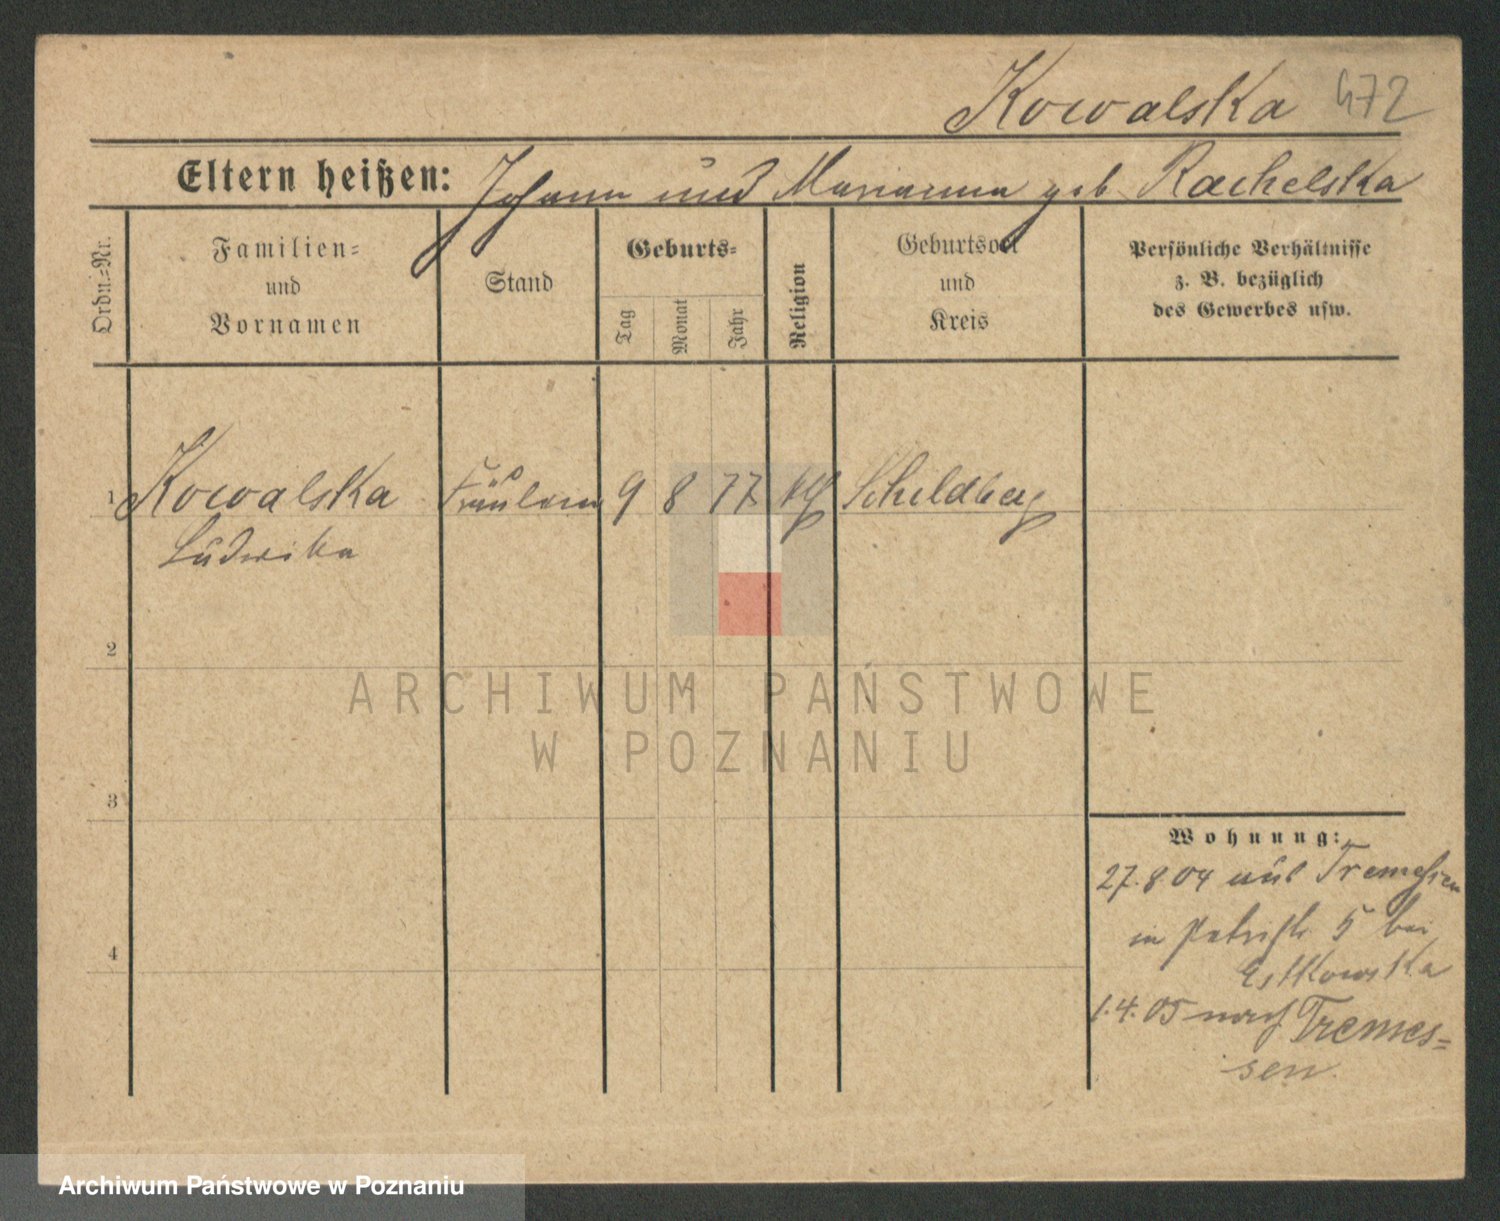 Kowalska 472
Eltern heißen: Johann und Marianna geb Rachelska
Ordn.=Nr.
Familien=
und
Vornamen
Stand
Geburts=
Tag
Monat
Jahr
Religion
Geburtsort
und
Kreis
Persönliche Verhältnisse
z. B. bezüglich
des Gewerbes usw.
1 Kowalska Fräulein 9 8 77 kth Schildberg
Ludwika
2
3
4
Wohnung:
27.8.04 aus Tremessen
in 5 bei
Estkowska
1.4.05 nach Tremes=
sen.
ARCHIWUM PAŃSTWOWE
W POZNANIU
Archiwum Państwowe w Poznaniu